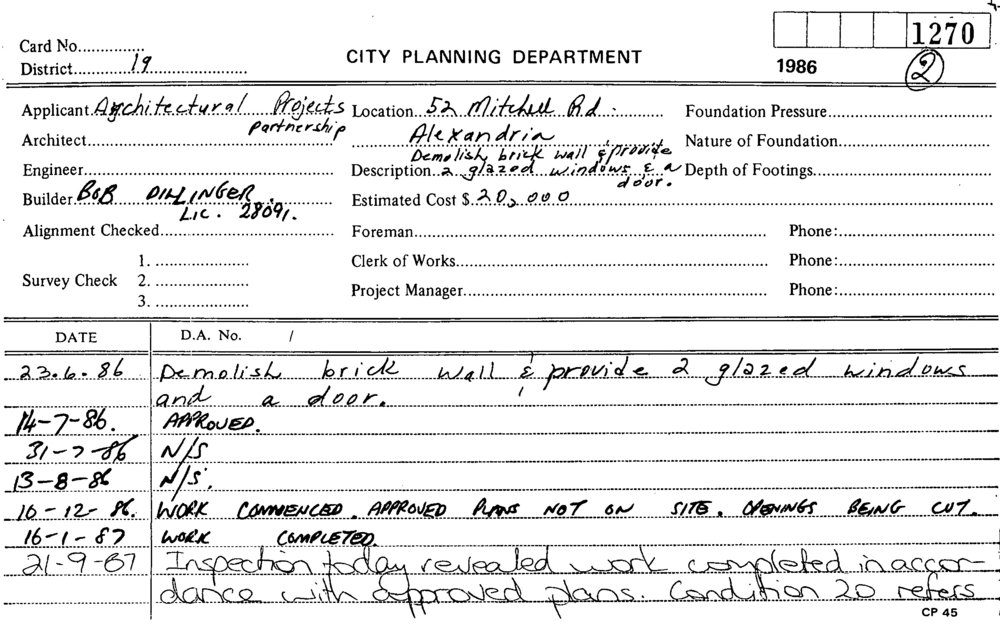 1270
Card No...............
District.........19.........
CITY PLANNING DEPARTMENT
1986
2
Applicant Architectural Projects
Partnership
Location 52 Mitchell Rd.
Alexandria
Foundation Pressure
Architect
Nature of Foundation
Engineer
Description Demolish brick wall & provide
2 glazed windows & a
door.
Depth of Footings
Builder BOB DILLINGER.
Lic. 28091.
Estimated Cost $ 20,000
Alignment Checked
Foreman
Phone:
Survey Check
1.
2.
3.
Clerk of Works
Phone:
Project Manager
Phone:
DATE D.A. No. /
23.6.86 Demolish brick wall & provide 2 glazed windows
and a door.
14-7-86. APPROVED.
31-7-86 N/S
13-8-86 N/S.
16-12-86. WORK COMMENCED. APPROVED PLANS NOT ON SITE. OPENINGS BEING CUT.
16-1-87 WORK COMPLETED.
21-9-87 Inspection today revealed work completed in accor-
dance with approved plans. Condition 20 refers
CP 45